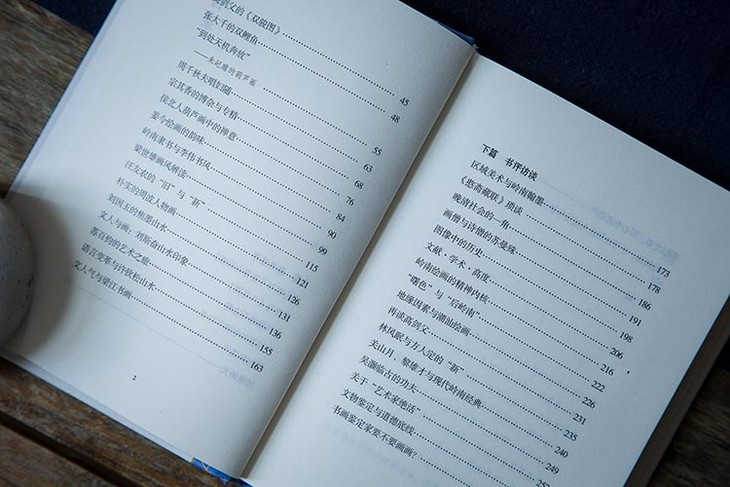 剑父的《双骏图》 45
张大千的双鲤鱼 48
“到处天机奔放”
——朱屺瞻的葫芦画 55
周千秋夫唱妇随 63
宗其香的博杂与专精 68
侯北人葫芦画中的禅意 76
姜今绘画的韵味 84
岭南隶书与李伟书风 90
梁世雄画风解读 99
汪友农的“旧”与“新” 115
朴实的周波人物画 121
刘国玉的焦墨山水 126
文人与画，刘斯奋山水印象 131
苏百钧的艺术之旅 136
语言变革与许钦松山水 155
文人气与梁江书画 163
2
下篇 书评访谈
区域美术与岭南翰墨 173
《愙斋藏联》琐谈 178
晚清社会的一角 186
画僧与诗僧的苏曼殊 191
图像中的历史 198
文献·学术·高度 206
岭南绘画的精神内核 216
“曙色”与“后岭南” 222
地缘因素与潮汕绘画 226
再谈高剑父 231
林风眠与方人定的“新” 235
关山月、黎雄才与现代岭南经典 240
吴灏临古的功夫 249
关于“艺术家绝活”
文物鉴定与道德底线
书画鉴定家要不要画画？